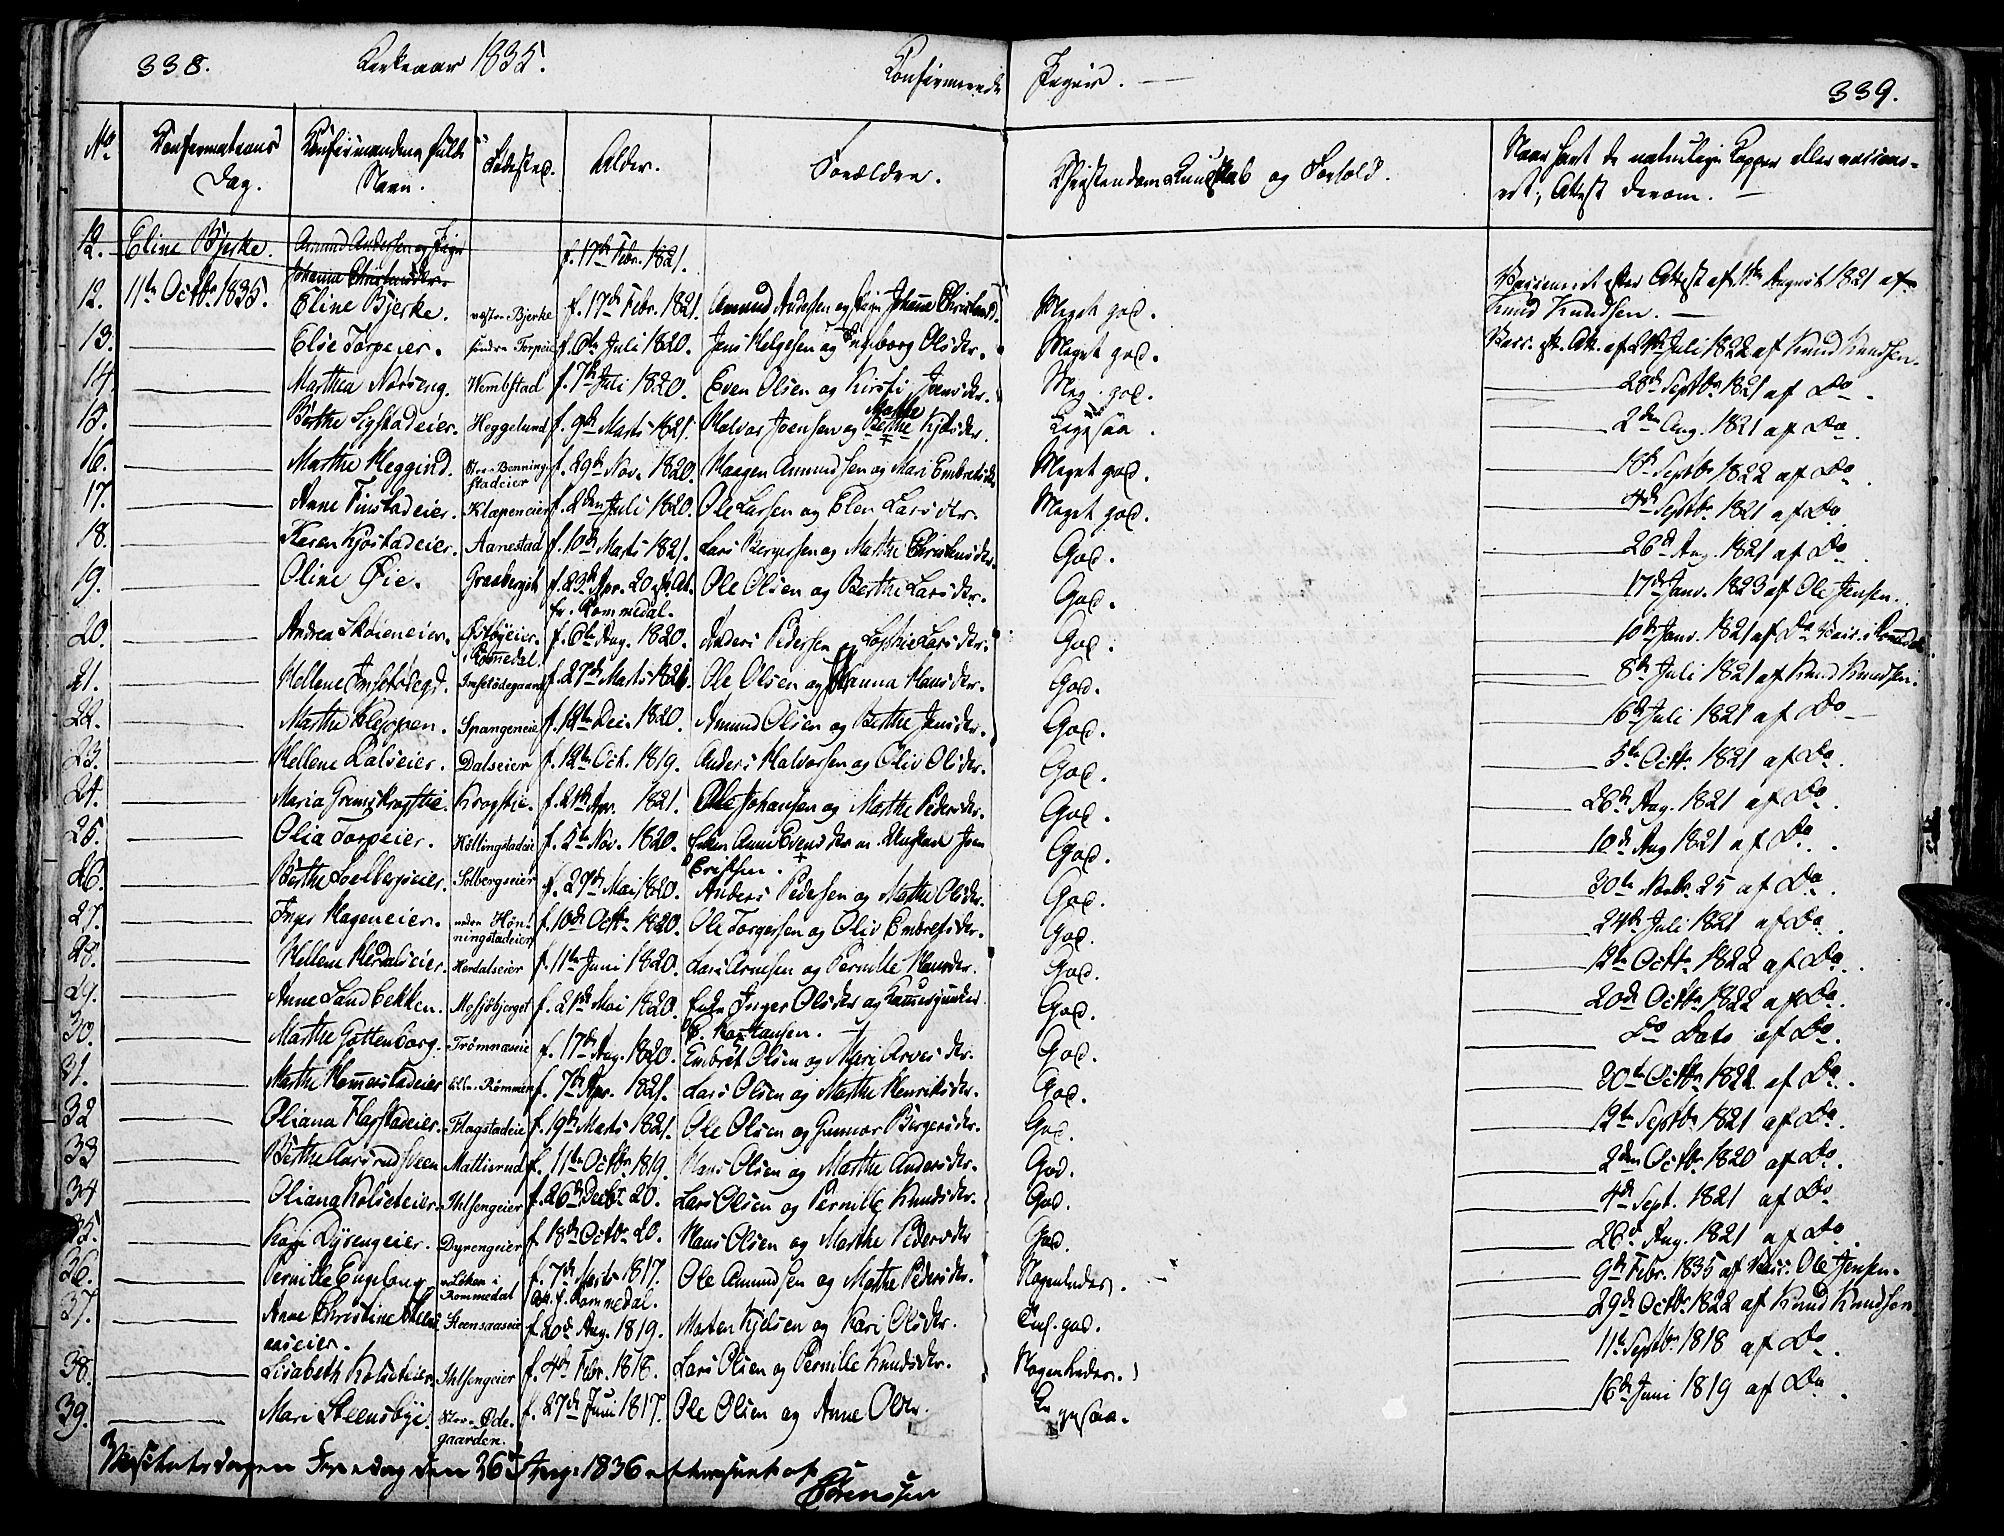 338. Kirkeaar 1835. Confirmerede Piger. 339.
No. Confirmations Dag. Confirmandens fulde Navn. Fødested. Alder. Forældre. Christendoms Kundskab og Forhold. Naar havt de naturlige Kopper eller vaccineret, Attest derom.
12. Eline Bjerke. Amund Andersen og Pige Johanne Christensdr. f. 17de Febr. 1821.
12. 11te Octbr. 1835. Eline Bjerke. vestre Bjerke f. 17de Febr. 1821. Amund Andersen og Pige Johanne Christensd. Meget god. Vaccineret efter Attest af 1ste August 1821 af Knud Knudsen.
13. Else Torpeier. søndre Torpeie f. 6te Juli 1820. Jens Helgesen og Ingeborg Olsdr. Meget god. Vacc. eft. Att. af 24de Juli 1822 af Knud Knudsen.
14. Marthea Norseng. Wembstad f. 7de Juli 1820. Even Olsen og Kirsti Jensdr. Meg. god. 28de Septbr. 1821 af Do.
15. Berthe Sigstadeier. Heggelund f. 9de Marts 1821. Halvor Joensen og Berthe Marthe Kjelsdr. Ligesaa. 2den Aug. 1821 af Do.
16. Marthe Heggind. Stor-Benningstadeier f. 29de Nov. 1820. Haagen Amundsen og Mari Embretsdr. Meget god. 18de Septbr. 1822 af Do.
17. Anne Finstadeier. Klæpeneier f. 2den Juli 1820. Ole Larsen og Elen Larsdr. Meget god. 4de Septbr. 1821 af Do.
18. Karen Kjostadeier. Aanestad f. 10de Marts 1821. Lars Bergersen og Marthe Christensdr. God. 26de Aug. 1821 af Do.
19. Oline Øie. Grasberget f. 23de Apr. 20 ft. At. fr. Rommedal. Ole Olsen og Berthe Larsdr. God. 17de Janr. 1823 af Ole Jensen.
20. Andrea Skøieneier. Østbyeier i Rommedal f. 6te Aug. 1820. Anders Pedersen og Sophie Larsdr. God. 10de Janr. 1821 af Do Vacc. i Romedal.
21. Hellene Imsetødegd. Imsetødegaard f. 27de Marts 1821. Ole Olsen og Hanna Hansdr. God. 8de Juli 1821 af Knud Knudsen.
22. Marthe Kleppen. Spangeneie f. 12te Dec. 1820. Amund Olsen og Berthe Jensdr. God. 16de Juli 1821 af Do
23. Hellene Dalseier. Dalseier f. 12te Oct. 1819. Anders Halvorsen og Oliv Olsdr. God. 5te Octbr. 1821 af Do.
24. Maria Grønskrogstie. Krogstie. f. 21de Apr. 1821. Ole Johansen og Marthe Pedersdr. God. 26de Aug. 1821 af Do.
25. Olia Torpeier. Høllingstadeie f. 5te Nov. 1820. Enken Anne Evensdr. Ungkarl Joen Eriksen. God. 10de Aug 1821 af Do.
26. Berthe Solbergseier. Solbergseier f. 27de Mai 1820. Anders Pedersen og Marthe Olsdr. God. 30te Novbr. 25 af Do.
27. Inger Hageneier. neden Hønningstadeier f. 10de Octbr. 1820. Ole Torgersen og Oliv Embretsdr. God. 24de Juli 1821 af Do.
28. Hellene Herdalseier. Herdalseier f. 11te Juni 1820. Lars Arnesen og Pernille Hansdr. God. 12te Octbr. 1822 af Do.
29. Anne Sandbekken. Messebjerget f. 21de Mai 1820. Enke Inger Olsdr og Kammerjunker Hansen. God. 20de Octbr. 1822 af Do.
30. Marthe Gottenborg. Trømnæseie f. 17de Aug. 1820. Embret Olsen og Mari Arnesdr. God. Do Dato af Do.
31. Marthe Hommerstadeier. lille-Rømmen f. 7de Apr. 1821. Lars Olsen og Marthe Henriksdr. God. 30te Octbr. 1822 af Do.
32 Oliana Flagstadeier. Flagstadeie f. 19de Marts 1821. Ole Olsen og Gunnor Børgersdr. God. 12te Septbr. 1821 af Do.
33 Berthe Aasrudsteen Mattisrud f. 11te Octbr. 1819. Hans Olsen og Marthe Andersdr. God. 2den Octbr. 1820 af Do.
34 Oliana Kolseteier. Ihlsengeier f. 26de Decbr. 20. Lars Olsen og Pernille Knudsdr. God. 4de Sept. 1821 af Do
35. Kari Dyrengeier. Dyrengeier f. 18de Octbr. 20. Hans Olsen og Marthe Pedersdr God. 26de Aug. 1821 af Do
36. Pernille Engelaug Leken i Rommedal f. 7de Marts 1817. Att. f. Rommedal. Ole Amundsen og Marthe Pedersdr. Nogenledes. 9de Febr. 1835 af Vacc. Ole Jensen.
37. Anne Christine Steensaaseier. Steensaaseie f. 20de Aug. 1819. Morten Kjelsen og Kari Olsdr. Tem. god. 29de Octbr. 1822 af Knud Knudsen
38. Lisabeth Kolseteier. Ihlsengeier f. 4de Febr. 1818. Lars Olsen og Pernille Knudsdr. Nogenledes. 11te Septbr. 1818 af Do.
39. Mari Steensbye. Stor-Ødegaarden. f. 27de Juni 1817. Ole Olsen og Anne Olsdr. Ligesaa. 16de Juni 1819 af Do.
Visitatsdagen Fredag den 26de Aug. 1836 eftersunt af
Sørenssen